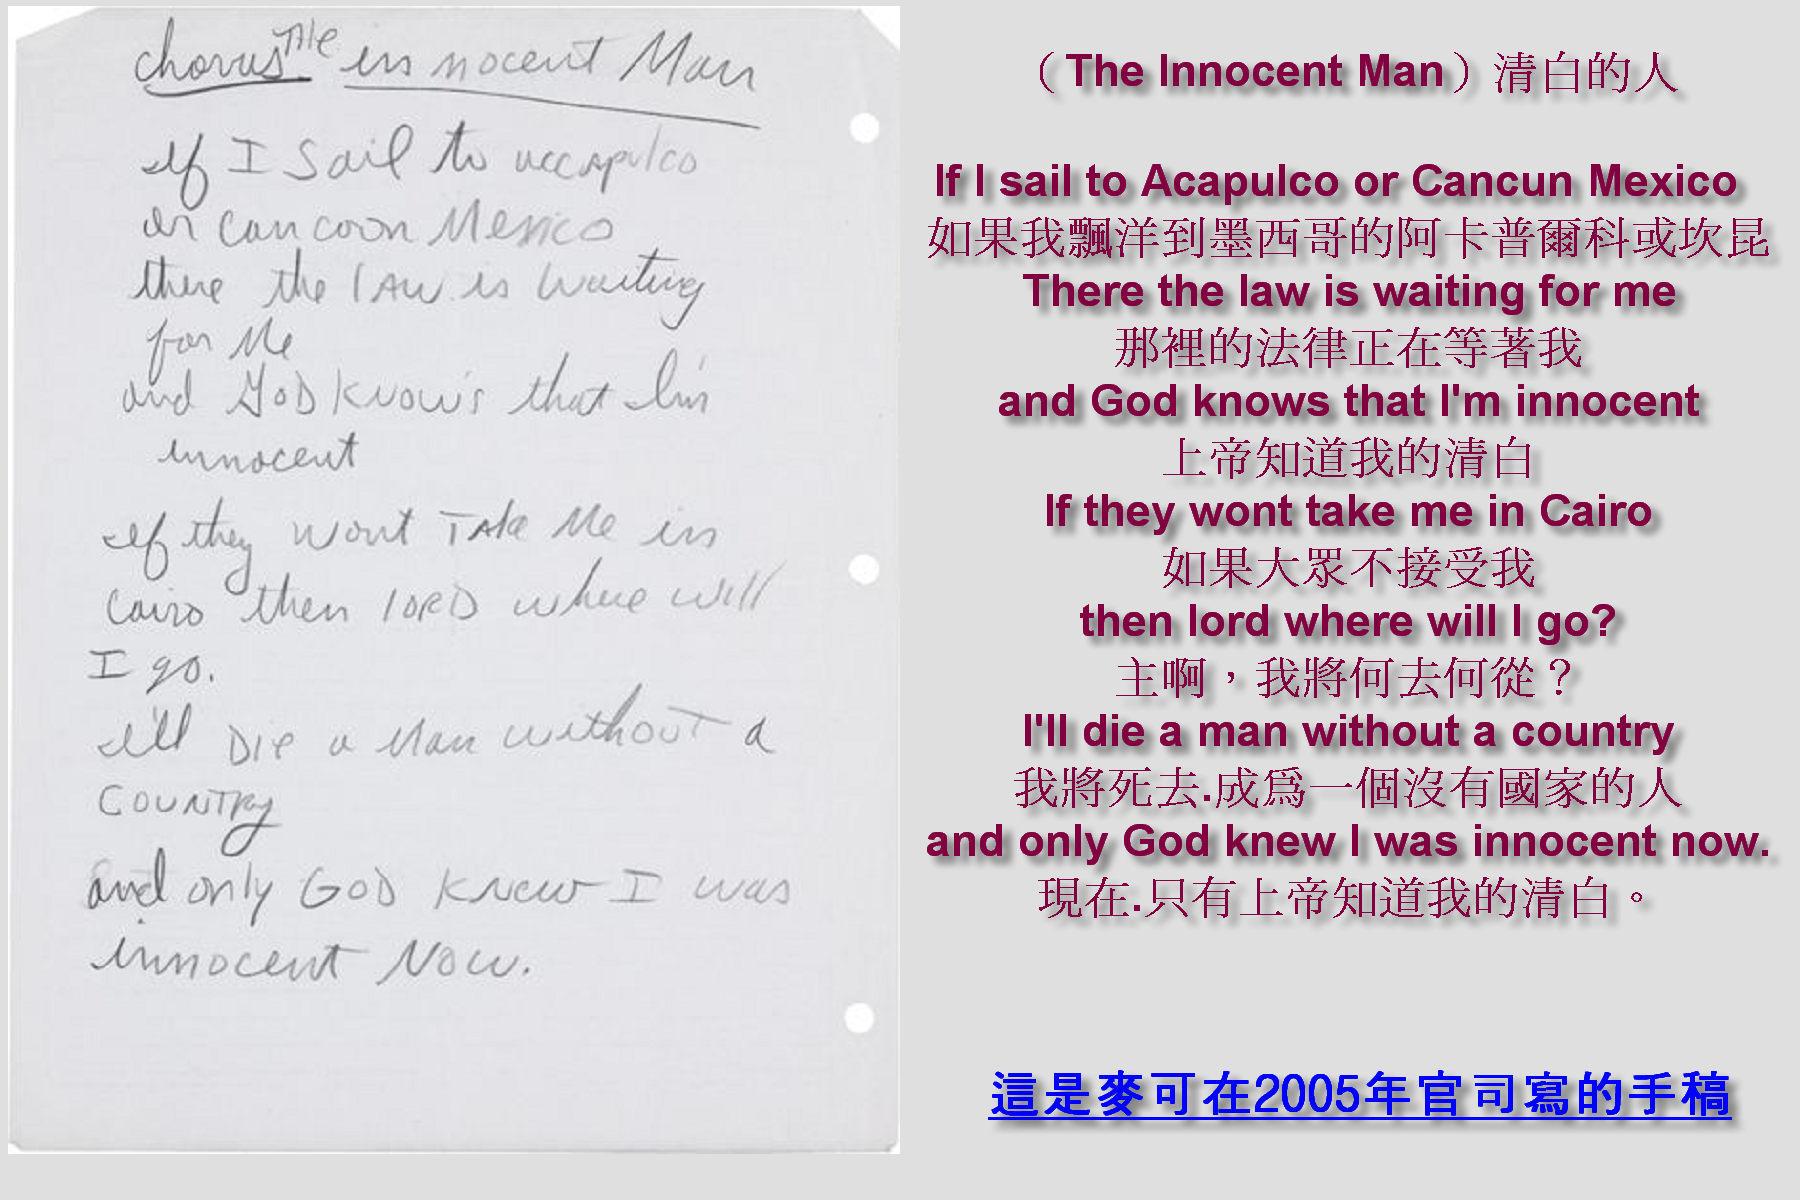 chorus The innocent Man
If I Sail to accapulco
or Can coon Mexico
there the LAW is waiting
for Me
and GOD KNOW'S that I'm
innocent
If they wont TAke Me in
Cairo then LORD where will
I go.
I'll DIe a Man without a
COUNTRy
and only GOD Knew I was
innocent Now.
（The Innocent Man）清白的人
If I sail to Acapulco or Cancun Mexico
如果我飄洋到墨西哥的阿卡普爾科或坎昆
There the law is waiting for me
那裡的法律正在等著我
and God knows that I'm innocent
上帝知道我的清白
If they wont take me in Cairo
如果大眾不接受我
then lord where will I go?
主啊，我將何去何從？
I'll die a man without a country
我將死去.成爲一個沒有國家的人
and only God knew I was innocent now.
現在.只有上帝知道我的清白。
這是麥可在2005年官司寫的手稿